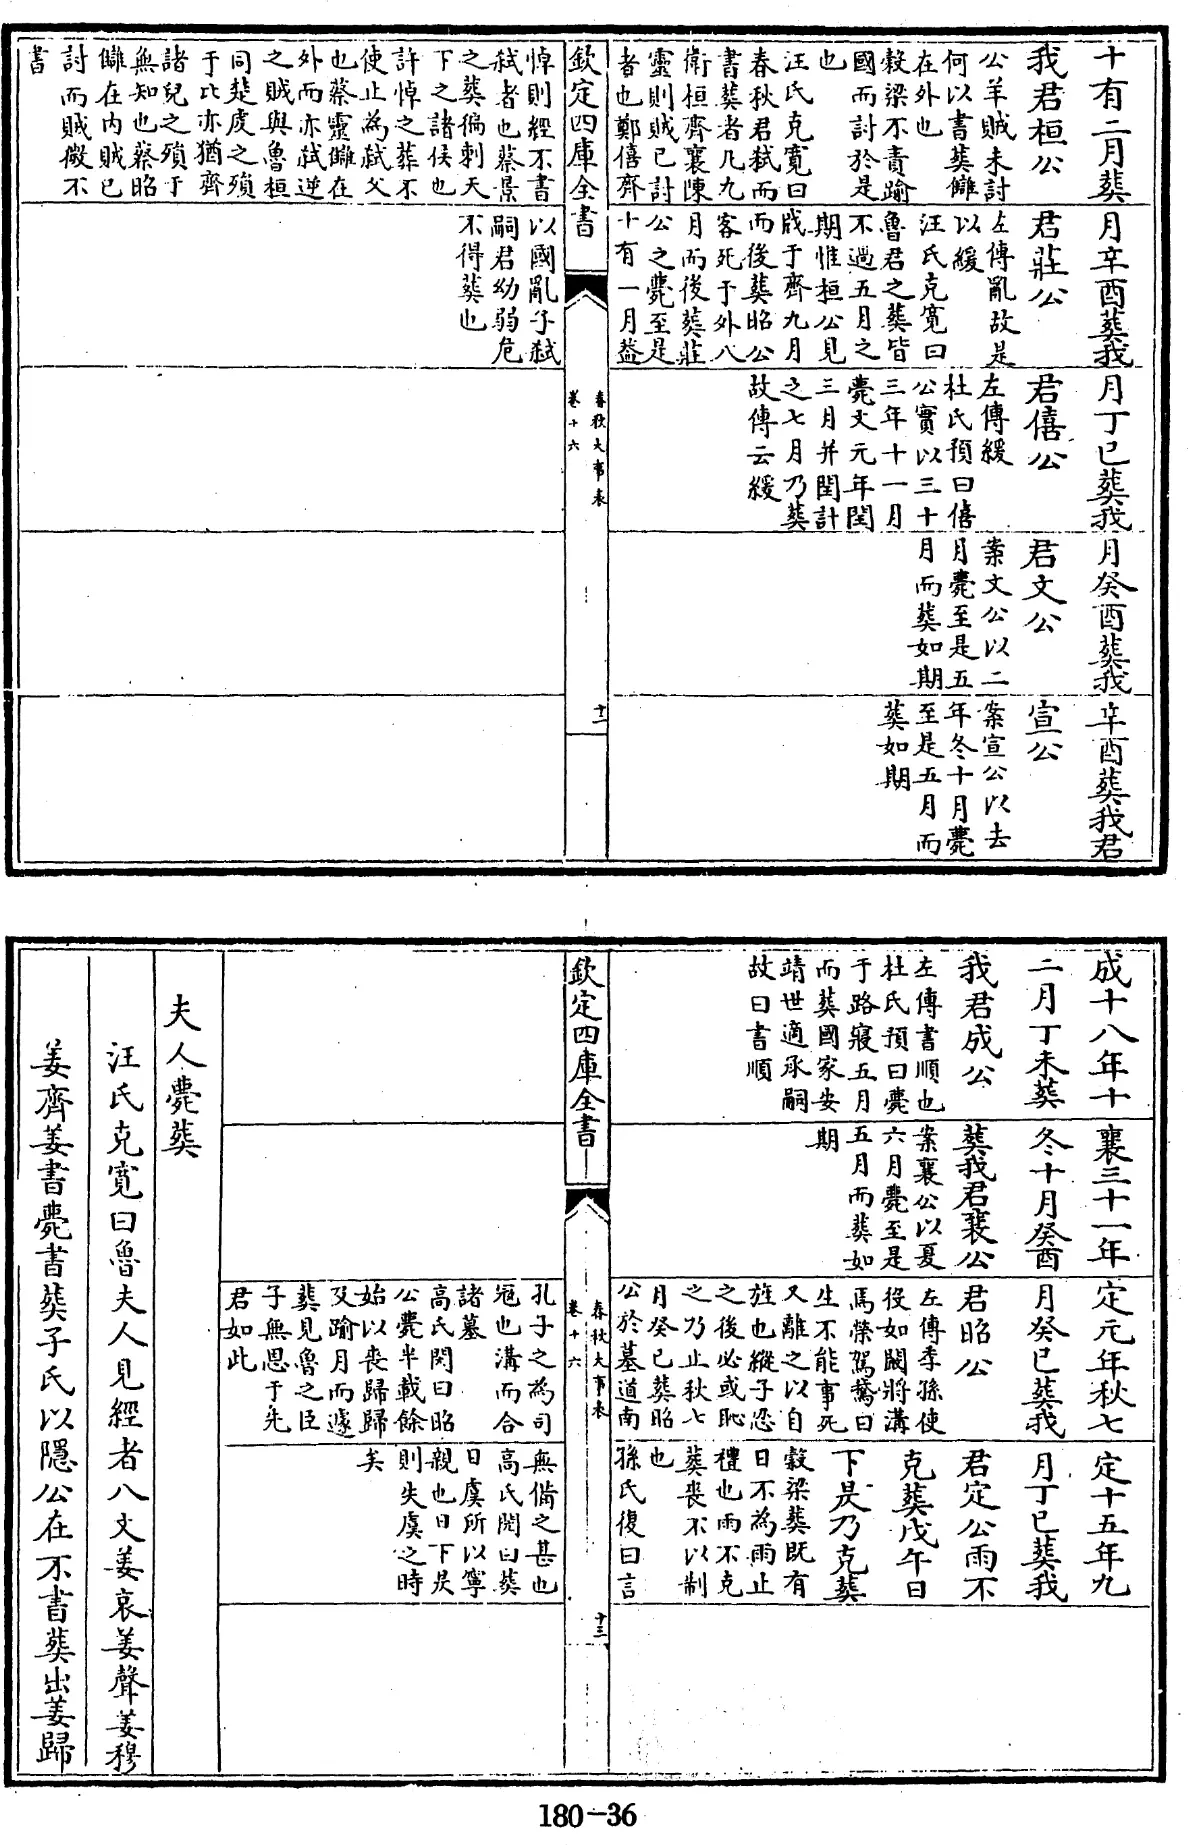 十有二月葬
我君桓公
公羊賊未討
何以書葬讎
在外也
穀梁不責踰
國而討於是
也
汪氏克寬曰
春秋君弒而
書葬者凡九
衛桓齊襄陳
靈則賊已討
者也鄭僖齊
悼則經不書
弒者也蔡景
之葬徧刺天
下之諸侯也
許悼之葬不
使止為弒父
也蔡靈讎在
外而亦弒逆
之賊與魯桓
同楚虔之殞
于比亦猶齊
諸兒之殞于
無知也蔡昭
讎在内賊已
討而賊微不
書
月辛酉葬我
君莊公
左傳亂故是
以緩
汪氏克寬曰
魯君之葬皆
不過五月之
期惟桓公見
戕于齊九月
而後葬昭公
客死于外八
月而後葬莊
公之薨至是
十有一月葢
以國亂子弒
嗣君幼弱危
不得葬也
月丁巳葬我
君僖公
左傳緩
杜氏預曰僖
公實以三十
三年十一月
薨文元年閏
三月并閏計
之七月乃葬
故傳云緩
月癸酉葬我
君文公
案文公以二
月薨至是五
月而葬如期
辛酉葬我君
宣公
案宣公以去
年冬十月薨
至是五月而
葬如期
欽定四庫全書
春秋大事表
卷十六
十二
成十八年十
二月丁未葬
我君成公
左傳書順也
杜氏預曰薨
于路寢五月
而葬國家安
靖世適承嗣
故曰書順
襄三十一年
冬十月癸酉
葬我君襄公
案襄公以夏
六月薨至是
五月而葬如
期
定元年秋七
月癸巳葬我
君昭公
左傳季孫使
役如闞將溝
焉榮駕鵞曰
生不能事死
又離之以自
旌也縱子忍
之後必或恥
之乃止秋七
月癸巳葬昭
公於墓道南
孔子之為司
宼也溝而合
諸墓
高氏閌曰昭
公薨半載餘
始以喪歸歸
又踰月而遽
葬見魯之臣
子無恩于先
君如此
定十五年九
月丁巳葬我
君定公雨不
克葬戊午日
下昃乃克葬
穀梁葬既有
日不為雨止
禮也雨不克
葬喪不以制
也
孫氏復曰言
無備之甚也
高氏閌曰葬
日虞所以寧
親也日下昃
則失虞之時
矣
欽定四庫全書
春秋大事表
卷十六
十三
夫人薨葬
汪氏克寬曰魯夫人見經者八文姜哀姜聲姜穆
姜齊姜書薨書葬子氏以隱公在不書葬出姜歸
180-36